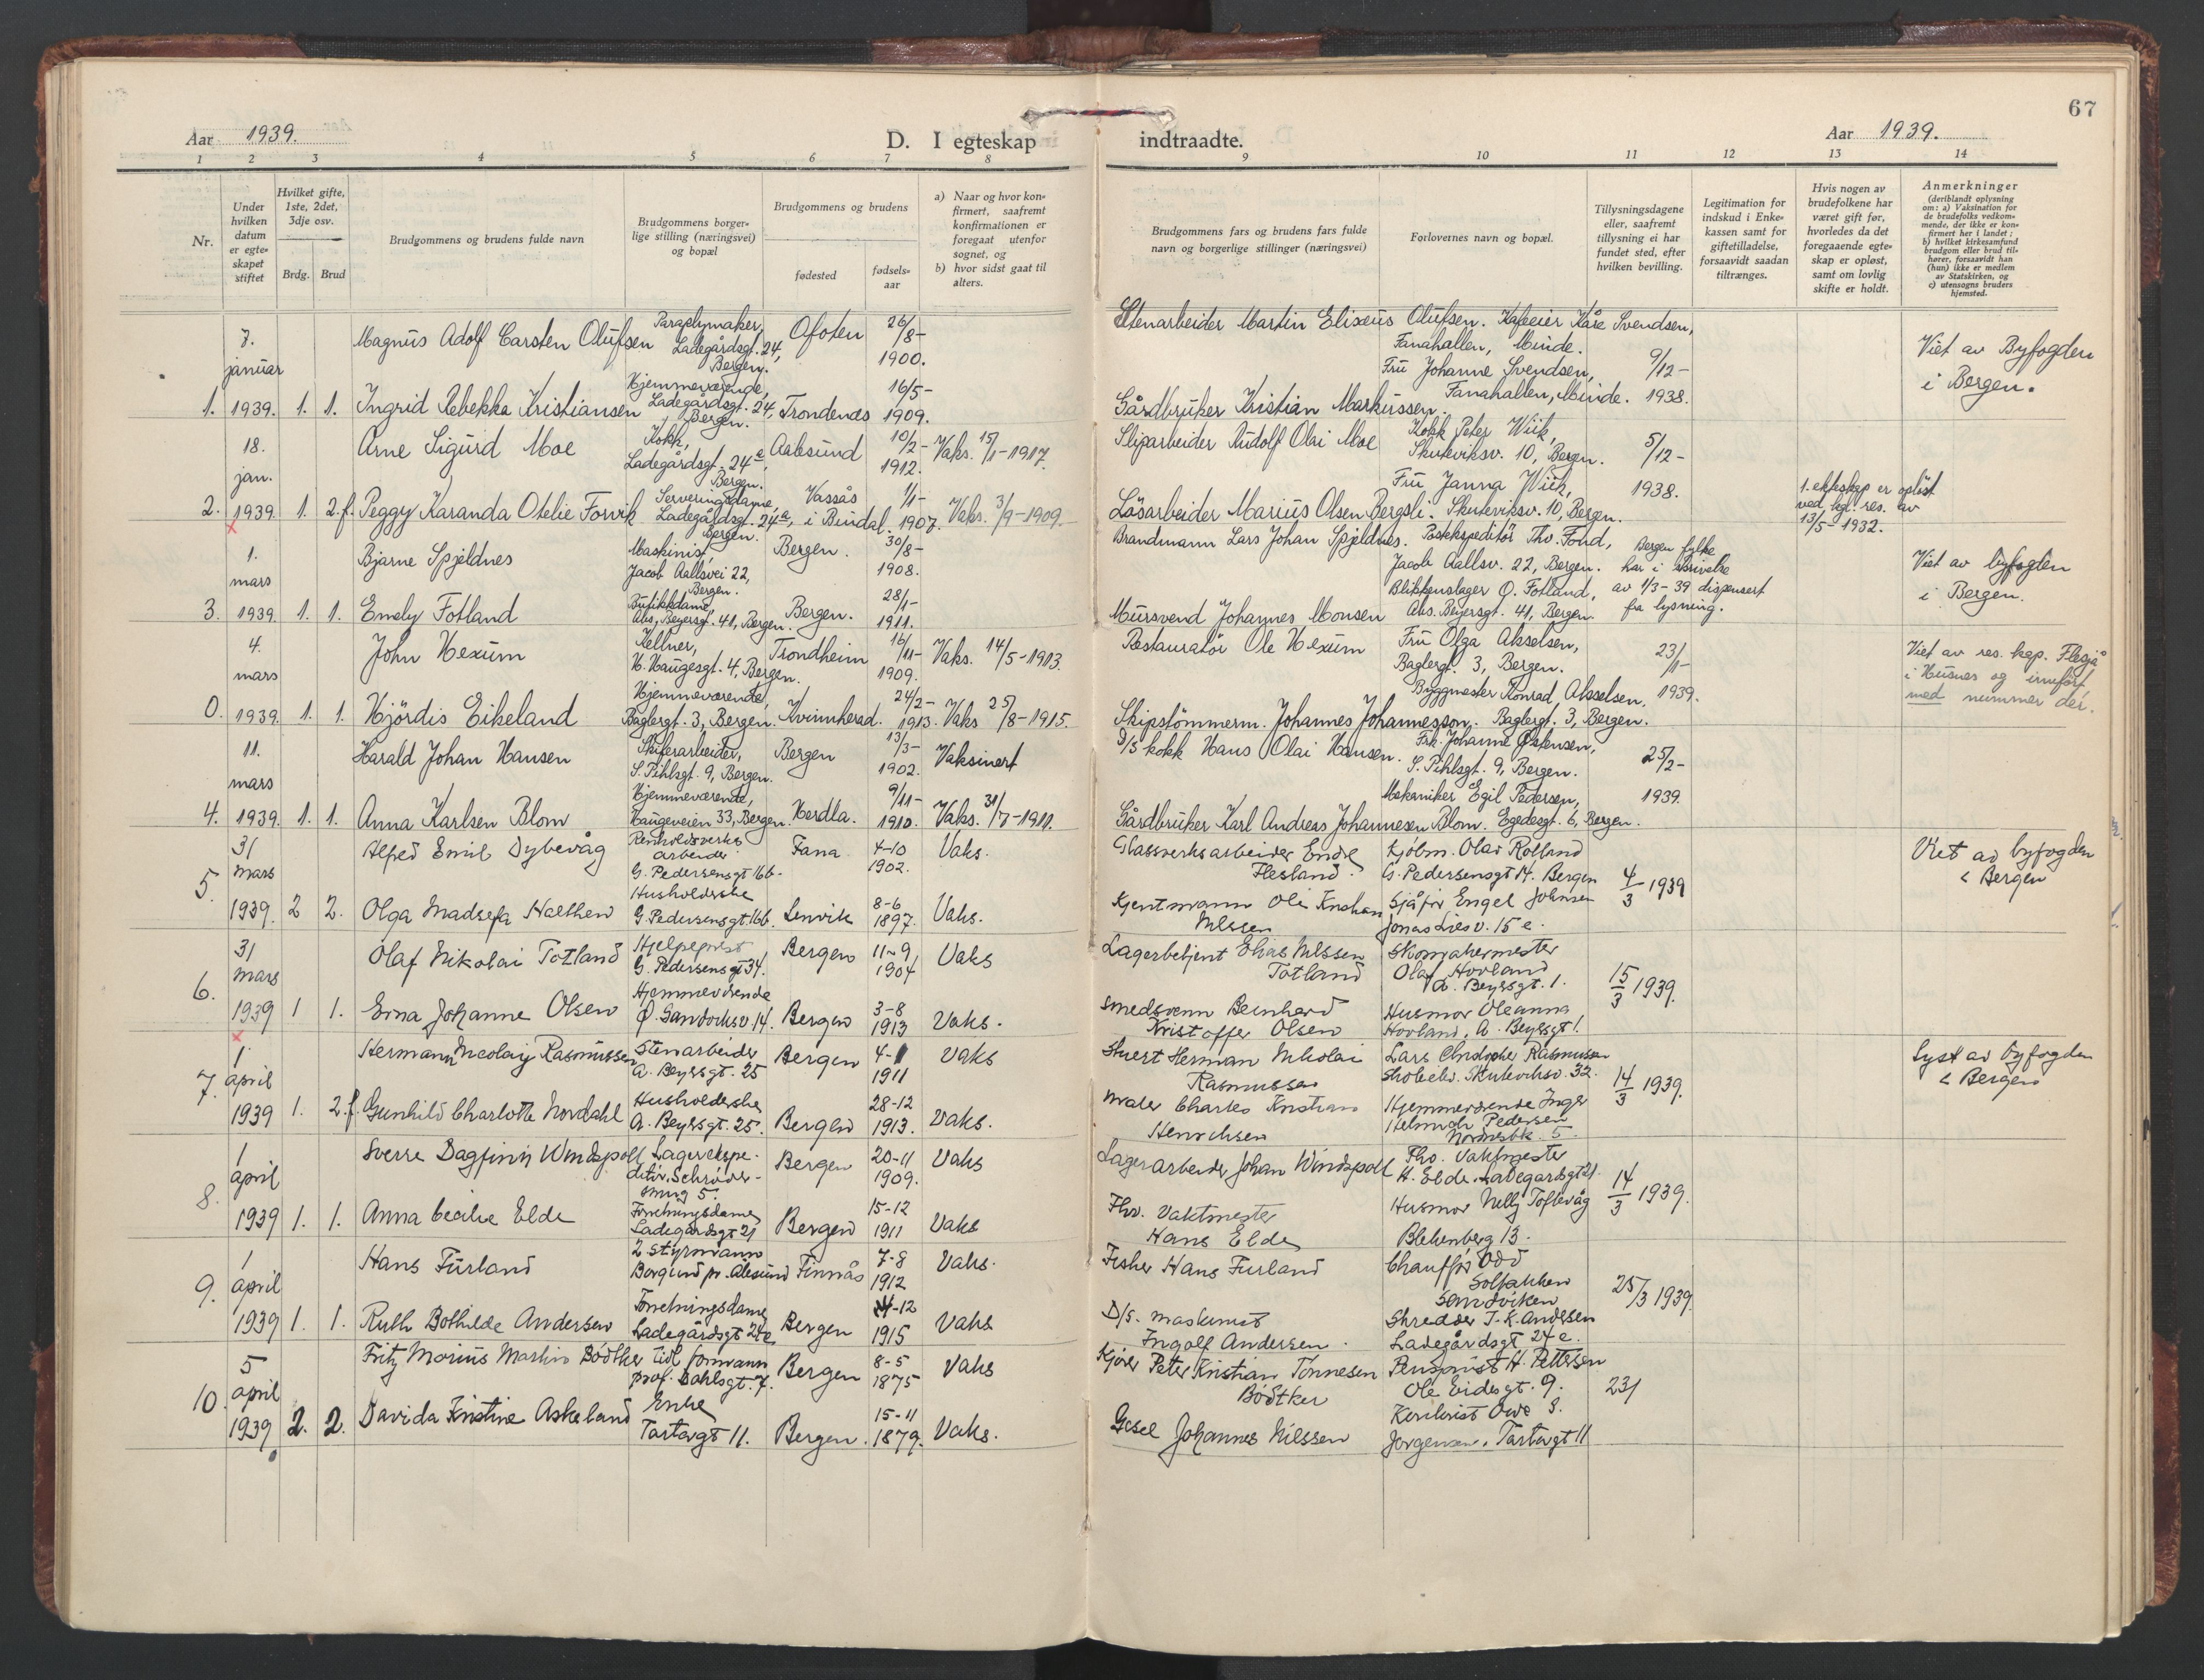 67
Aar 1939.
D. I egteskap indtraadte.
Aar 1939.
1 2 3 4 5 6 7 8 9 10 11 12 13 14
Nr.
Under hvilken datum er egteskapet stiftet
Hvilket gifte, 1ste, 2det, 3dje osv.
Brdg. Brud
Brudgommens og brudens fulde navn
Brudgommens borgerlige stilling (næringsvei) og bopæl
Brudgommens og brudens
fødested
fødselsaar
a) Naar og hvor konfirmert, saafremt konfirmationen er foregaat utenfor sognet, og
b) hvor sidst gaat til alters.
Brudgommens fars og brudens fars fulde navn og borgerlige stillinger (næringsvei)
Forlovernes navn og bopæl.
Tillysningsdagene eller, saafremt tillysning ei har fundet sted, efter hvilken bevilling.
Legitimation for indskud i Enkekassen samt for giftetilladelse, forsaavidt saadan tiltrænges.
Hvis nogen av brudefolkene har været gift før, hvorledes da det foregaaende egteskap er opløst, samt om lovlig skifte er holdt.
Anmerkninger
(deriblandt oplysning om: a) Vaksination for de brudefolks vedkommende, der ikke er konfirmert her i landet; b) hvilket kirkesamfund brudgom eller brud tilhører, forsaavidt han (hun) ikke er medlem av Statskirken, og c) utensogns bruders hjemsted.
1. 7. januar 1939. 1. 1.
Magnus Adolf Carsten Olufsen Paraplymaker, Ladegårdsgt. 24, Bergen. Ofoten 26/8- 1900.
Stenarbeider Martin Eliseus Olufsen. Kafeeier Kåre Svendsen, Fanahallen, Minde.
Ingrid Rebekka Kristiansen Hjemmeværende, Ladegårdsgt. 24, Bergen. Trondenes 16/5- 1909.
Gårdbruker Kristian Markussen. Fru Johanne Svendsen, Fanahallen, Minde. 9/12- 1938.
Viet av Byfogden i Bergen.
2. 18. jan. 1939. 1. 2.f.
Arne Sigurd Moe Kokk, Ladegårdsgt. 24e, Bergen. Aalesund 10/2- 1912. Vaks. 15/1-1917.
Sliparbeider Rudolf Olai Moe Kokk Peter Wiik, Skuteviksv. 10, Bergen. 5/12- 1938.
Peggy Karanda Otelie Forvik Serveringsdame, Ladegårdsgt. 24a, Bergen. Vassås i Bindal. 1/1- 1907. Vaks. 3/9-1909.
Løsarbeider Marius Olsen Bergsli. Fru Janna Wiik, Skuteviksv. 10, Bergen.
1. ekteskap er opløst ved kgl. res. av 13/5-1932.
3. 1. mars 1939. 1. 1.
Bjarne Spjeldnes Maskinist, Jacob Aallsvei 22, Bergen. Bergen. 30/8- 1908.
Brandmann Lars Johan Spjeldnes. Postekspeditör Thv. Fond, Jacob Aallsv. 22, Bergen.
Emely Fotland Butikkdame, Abs. Beyersgt. 41, Bergen. Bergen. 28/1- 1911.
Mursvend Johannes Monsen Blikkenslager Q. Fotland, Abs. Beyersgt. 41, Bergen.
Bergen fylke har i skrivelse av 1/3-39 dispensert fra lysning.
Viet av byfogden i Bergen.
0. 4. mars 1939. 1. 1.
John Hexum Kellner, H. Haugesgt. 4, Bergen. Trondheim 16/11- 1909. Vaks. 14/5-1913.
Restauratör Ole Hexum Fru Olga Akselsen, Baglergt. 3, Bergen. 23/1- 1939.
Hjördis Eikeland Hjemmeværende, Baglergt. 3, Bergen. Kvinnherad. 24/2- 1913. Vaks 25/8-1915.
Skipstömmerm. Johannes Johannesson. Byggmester Konrad Akselsen, Baglergt. 3, Bergen.
Viet av res. kap. Flesjå i Husnes og innfört med nummer dér.
4. 11. mars 1939. 1. 1.
Harald Johan Hansen Skiferarbeider, S. Pihlsgt. 9, Bergen. Bergen 13/3- 1902. Vaksinert
D/S kokk Hans Olai Hansen. Frk. Johanne Östensen, S. Pihlsgt. 9, Bergen. 25/2- 1939.
Anna Karlsen Blom Hjemmeværende, Haugeveien 33, Bergen. Herdla. 9/11- 1910. Vaks. 31/7-1911.
Gårdbruker Karl Andreas Johannesen Blom. Mekaniker Egil Pedersen, Egedesgt. 6, Bergen.
5 31 mars 1939. 2 2.
Alfred Emil Dybevåg Renholdsverks arbeider G. Pedersensgt 16b. Fana 4-10 1902. Vaks.
Glassverksarbeider Endre Flesland. Kjölm. Olav Rolland G. Pedersensgt 14. Bergen 4/3 1939
Olga Madsefa Halthen Husholderske G. Pedersensgt 16b. Lenvik 8-6 1897. Vaks.
Kjentmann Ole Kristian Nilssen Sjåfør Engel Johnsen Jonas Liesv. 15 e.
Viet av byfogden i Bergen
6. 31 mars 1939 1 1.
Olaf Nikolai Totland Hjelpeprest G. Pedersensgt 34. Bergen 11-9 1904 Vaks
Lagerbetjent Elias Nilssen Totland Skomakermester Olaf Hovland A. Beyersgt. 1. 15/3 1939.
Erna Johanne Olsen Hjemmeværende Ø. Sandviksv. 14. Bergen 3-8 1913 Vaks.
Smedsvenn Bernhard Kristoffer Olsen Husmor Oleanna Hovland, A. Beyersgt 1.
7. 1 april 1939 1. 2.f.
Hermann Nicolay Rasmussen Stenarbeider A. Beyersgt. 25 Bergen 4-1 1911 Vaks
Stuert Herman Nikolai Rasmussen Lars Christopher Rasmussen Skuteviksv. 32. 14/3 1939.
Gunhild Charlotte Nordahl Husholderske A. Beyersgt. 25. Bergen 28-12 1913. Vaks.
Maler Charles Kristian Henrichsen Hjemmeværende Inger Helmich Pedersen Nordnesbk. 5.
Lyst av byfogden i Bergen
8. 1 april 1939 1. 1.
Sverre Dagfinn Windspoll Lagerekspeditör, Schrödersmug 5. Bergen 20-11 1909. Vaks
Lagerarbeider Johan Windspoll Fhv. Vaktmester H. Elde. Ladegårdsgt 21. 14/3 1939.
Anna Cecilie Elde Forretningsdame Ladegårdsgt 21 Bergen 15-12 1911 Vaks
Fhv. Vaktmester Hans Elde Husmor Nelly Toftevåg Blekenberg 13.
9. 1 april 1939 1. 1.
Hans Furland 2 Styrmann Borgund pr. Ålesund Finnås 7-8 1912 Vaks.
Fisker Hans Furland Chauffør Odd Solbakken Sandviken 25/3 1939.
Ruth Bothilde Andersen Forretningsdame Ladegårdsgt 24e Bergen 12 1915 Vaks
D/S. Maskinist Ingolf Andersen. Skredder J. K. Andersen Ladegårdsgt 24 e.
10. 5 april 1939 2. 2.
Fritz Marius Martin Bödtker tidl. formann prof. Dahlsgt. 7. Bergen 8-5 1875 Vaks
Kjører Peter Kristian Tønnesen Bödtker Pensjonist H. Pettersen Ole Eidesgt. 9. 23/
Davida Kristine Askeland Enke Tartargt 11. Bergen. 15-11 1879. Vaks.
Gjesel Johannes Nilssen Jørgensen. Tartargt 11